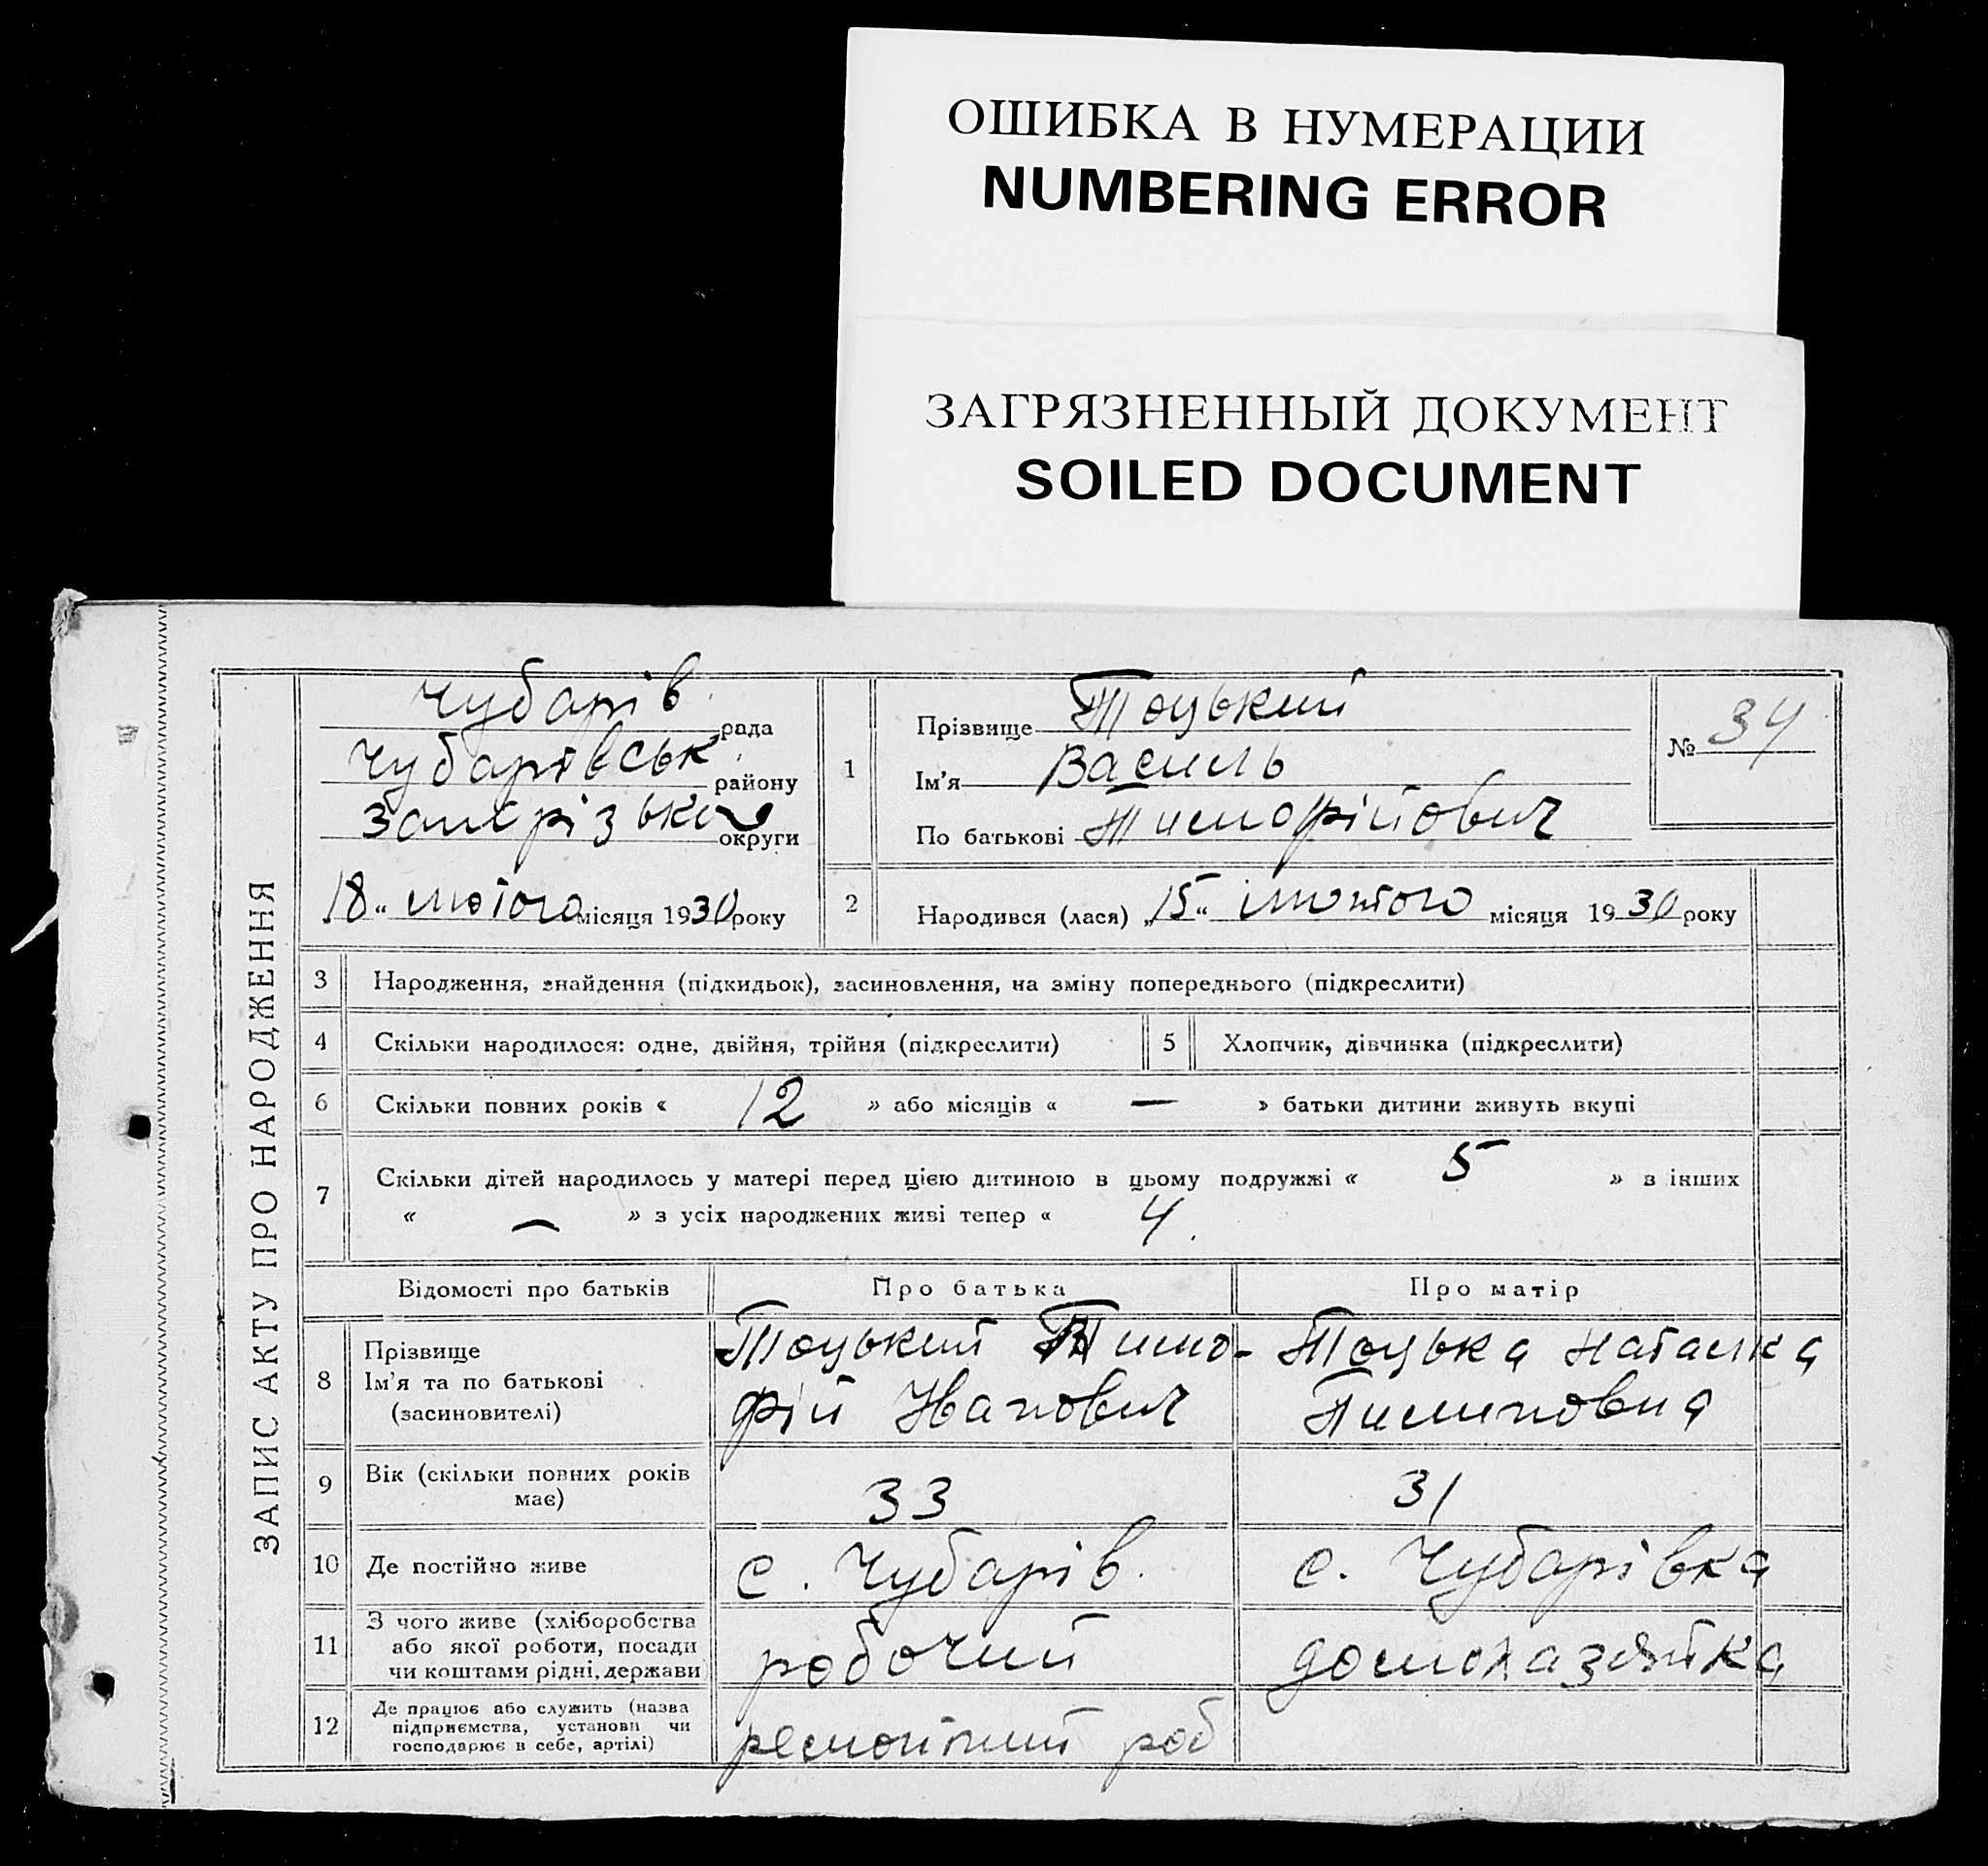 ОШИБКА В НУМЕРАЦИИ
NUMBERING ERROR
ЗАГРЯЗНЕННЫЙ ДОКУМЕНТ
SOILED DOCUMENT
ЗАПИС АКТУ ПРО НАРОДЖЕННЯ
Чубарів рада
Чубарівськ району
Запорізької округи
18 " лютого місяця 1930 року
1
Прізвище Тоцький
Ім'я Василь
По батькові Тимофійович
№ 34
2
Народився (лася) „15" лютого місяця 1930 року
3 Народження, знайдення (підкидьок), засиновлення, на зміну попереднього (підкреслити)
4 Скільки народилося: одне, двійня, трійня (підкреслити)
5 Хлопчик, дівчинка (підкреслити)
6 Скільки повних років « 12 » або місяців « — » батьки дитини живуть вкупі
7 Скільки дітей народилось у матері перед цією дитиною в цьому подружжі « 5 » в інших
« — » з усіх народжених живі тепер « 4.
Відомості про батьків Про батька Про матір
8 Прізвище
Ім'я та по батькові
(засиновителі)
Тоцький Тимо-
фій Іванович
Тоцька Наталка
Пилиповна
9 Вік (скільки повних років
має)
33
31
10 Де постійно живе
с. Чубарів.
с. Чубарівка
11 З чого живе (хліборобства
або якої роботи, посади
чи коштами рідні, держави
робочий
домохазяйка
12 Де працює або служить (назва
підприємства, установи чи
господарює в себе, артілі)
ремонтний роб